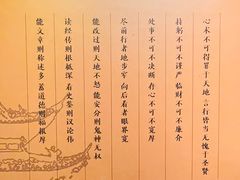 心术不可得罪于天地 言行皆当无愧于圣贤
持躬不可不谨严 临财不可不廉介
处事不可不决断 存心不可不宽厚
尽前行者地步窄 向后看者眼界宽
能改过则天地不怒 能安分则鬼神无权
读经传则根柢深 看史鉴则议论伟
能文章则称述多 蓄道德则福报厚